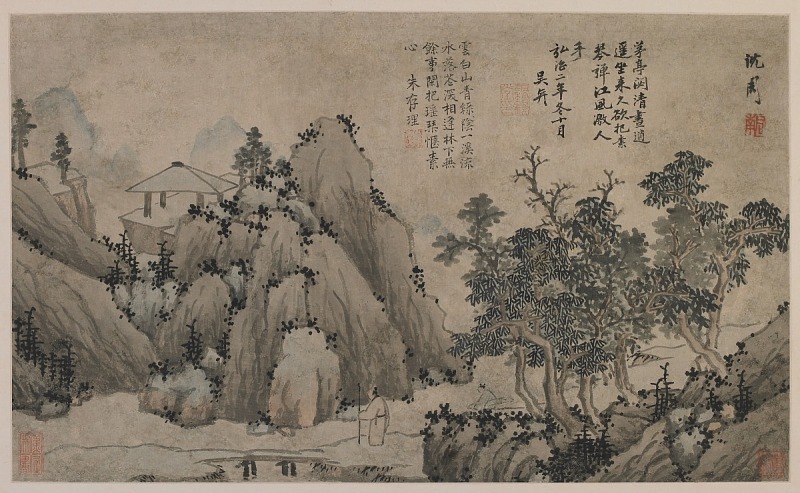 沈周
茅亭閴清晝逍
遥坐来久欲把素
琴彈江風激人
手
弘治二年冬十月
吴奕
雲白山青綠陰一溪流
水落花深相逢林下無
餘事閑把瑶琴愜素
心 朱存理